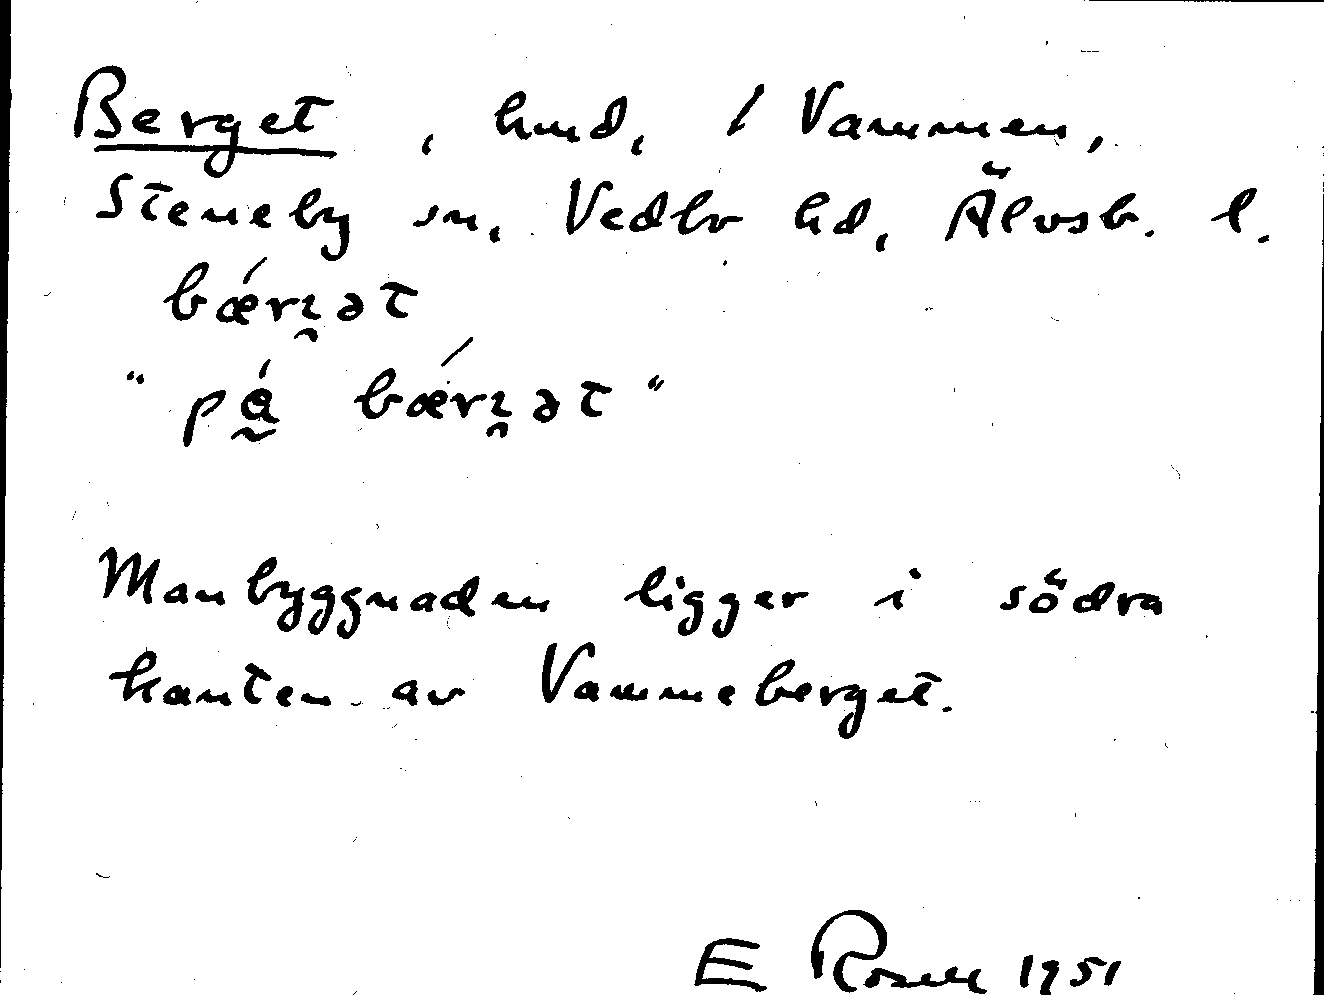 Berget, hmd, 1 Vammen,
Steneby sn, Vedbo hd, Älvsb. l.
bǽrı̯ət
"på bǽrı̯ət"
Manbyggnaden ligger i södra
kanten av Vammeberget.
E Rosell 1951